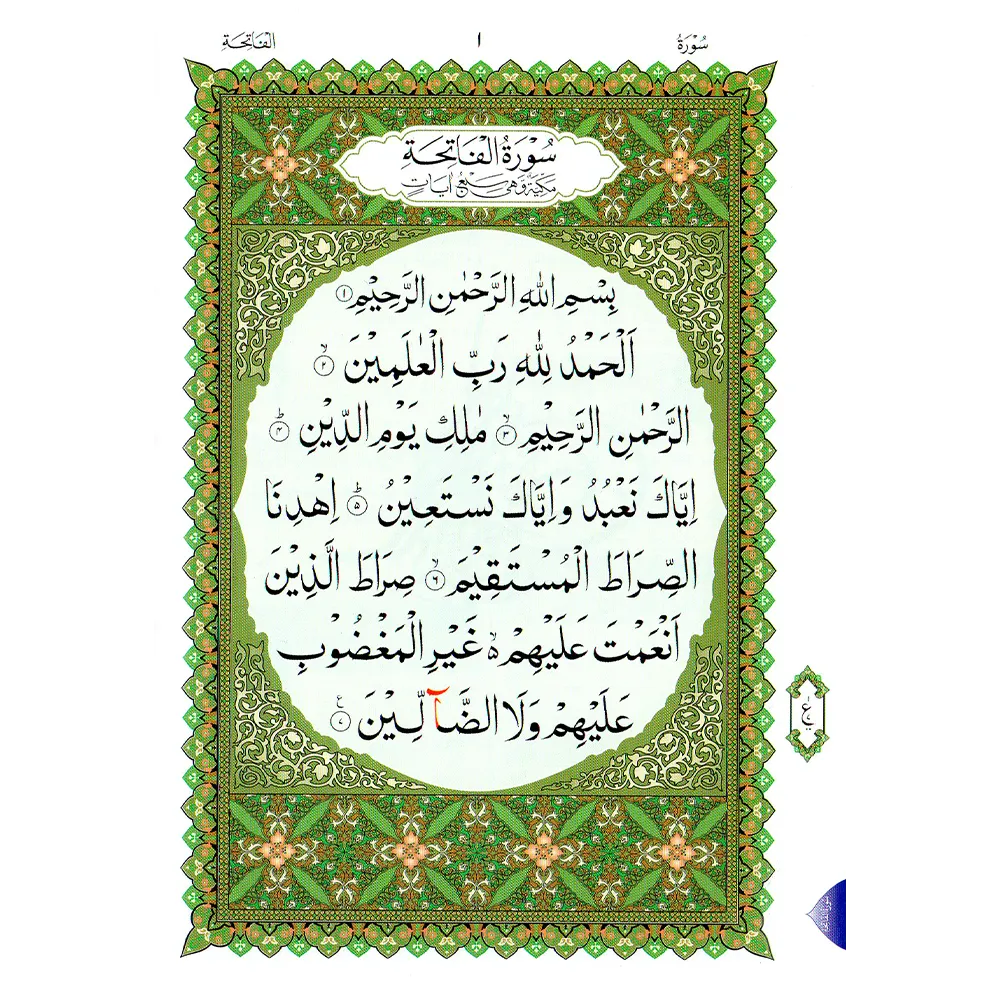 سُوْرَةُ ١ الْفَاتِحَةِ
سُوْرَةُ الْفَاتِحَةِ
مَكِّيَّةٌ وَّهِيَ سَبْعُ اٰيَاتٍ
بِسْمِ اللّٰهِ الرَّحْمٰنِ الرَّحِيْمِ ١
اَلْحَمْدُ لِلّٰهِ رَبِّ الْعٰلَمِيْنَ ۙ ٢
الرَّحْمٰنِ الرَّحِيْمِ ۙ ٣ مٰلِكِ يَوْمِ الدِّيْنِ ؕ ٤
اِيَّاكَ نَعْبُدُ وَاِيَّاكَ نَسْتَعِيْنُ ؕ ٥ اِهْدِنَا
الصِّرَاطَ الْمُسْتَقِيْمَ ۙ ٦ صِرَاطَ الَّذِيْنَ
اَنْعَمْتَ عَلَيْهِمْ ۙ۬ غَيْرِ الْمَغْضُوْبِ
عَلَيْهِمْ وَلَا الضَّآلِّيْنَ ع ٧